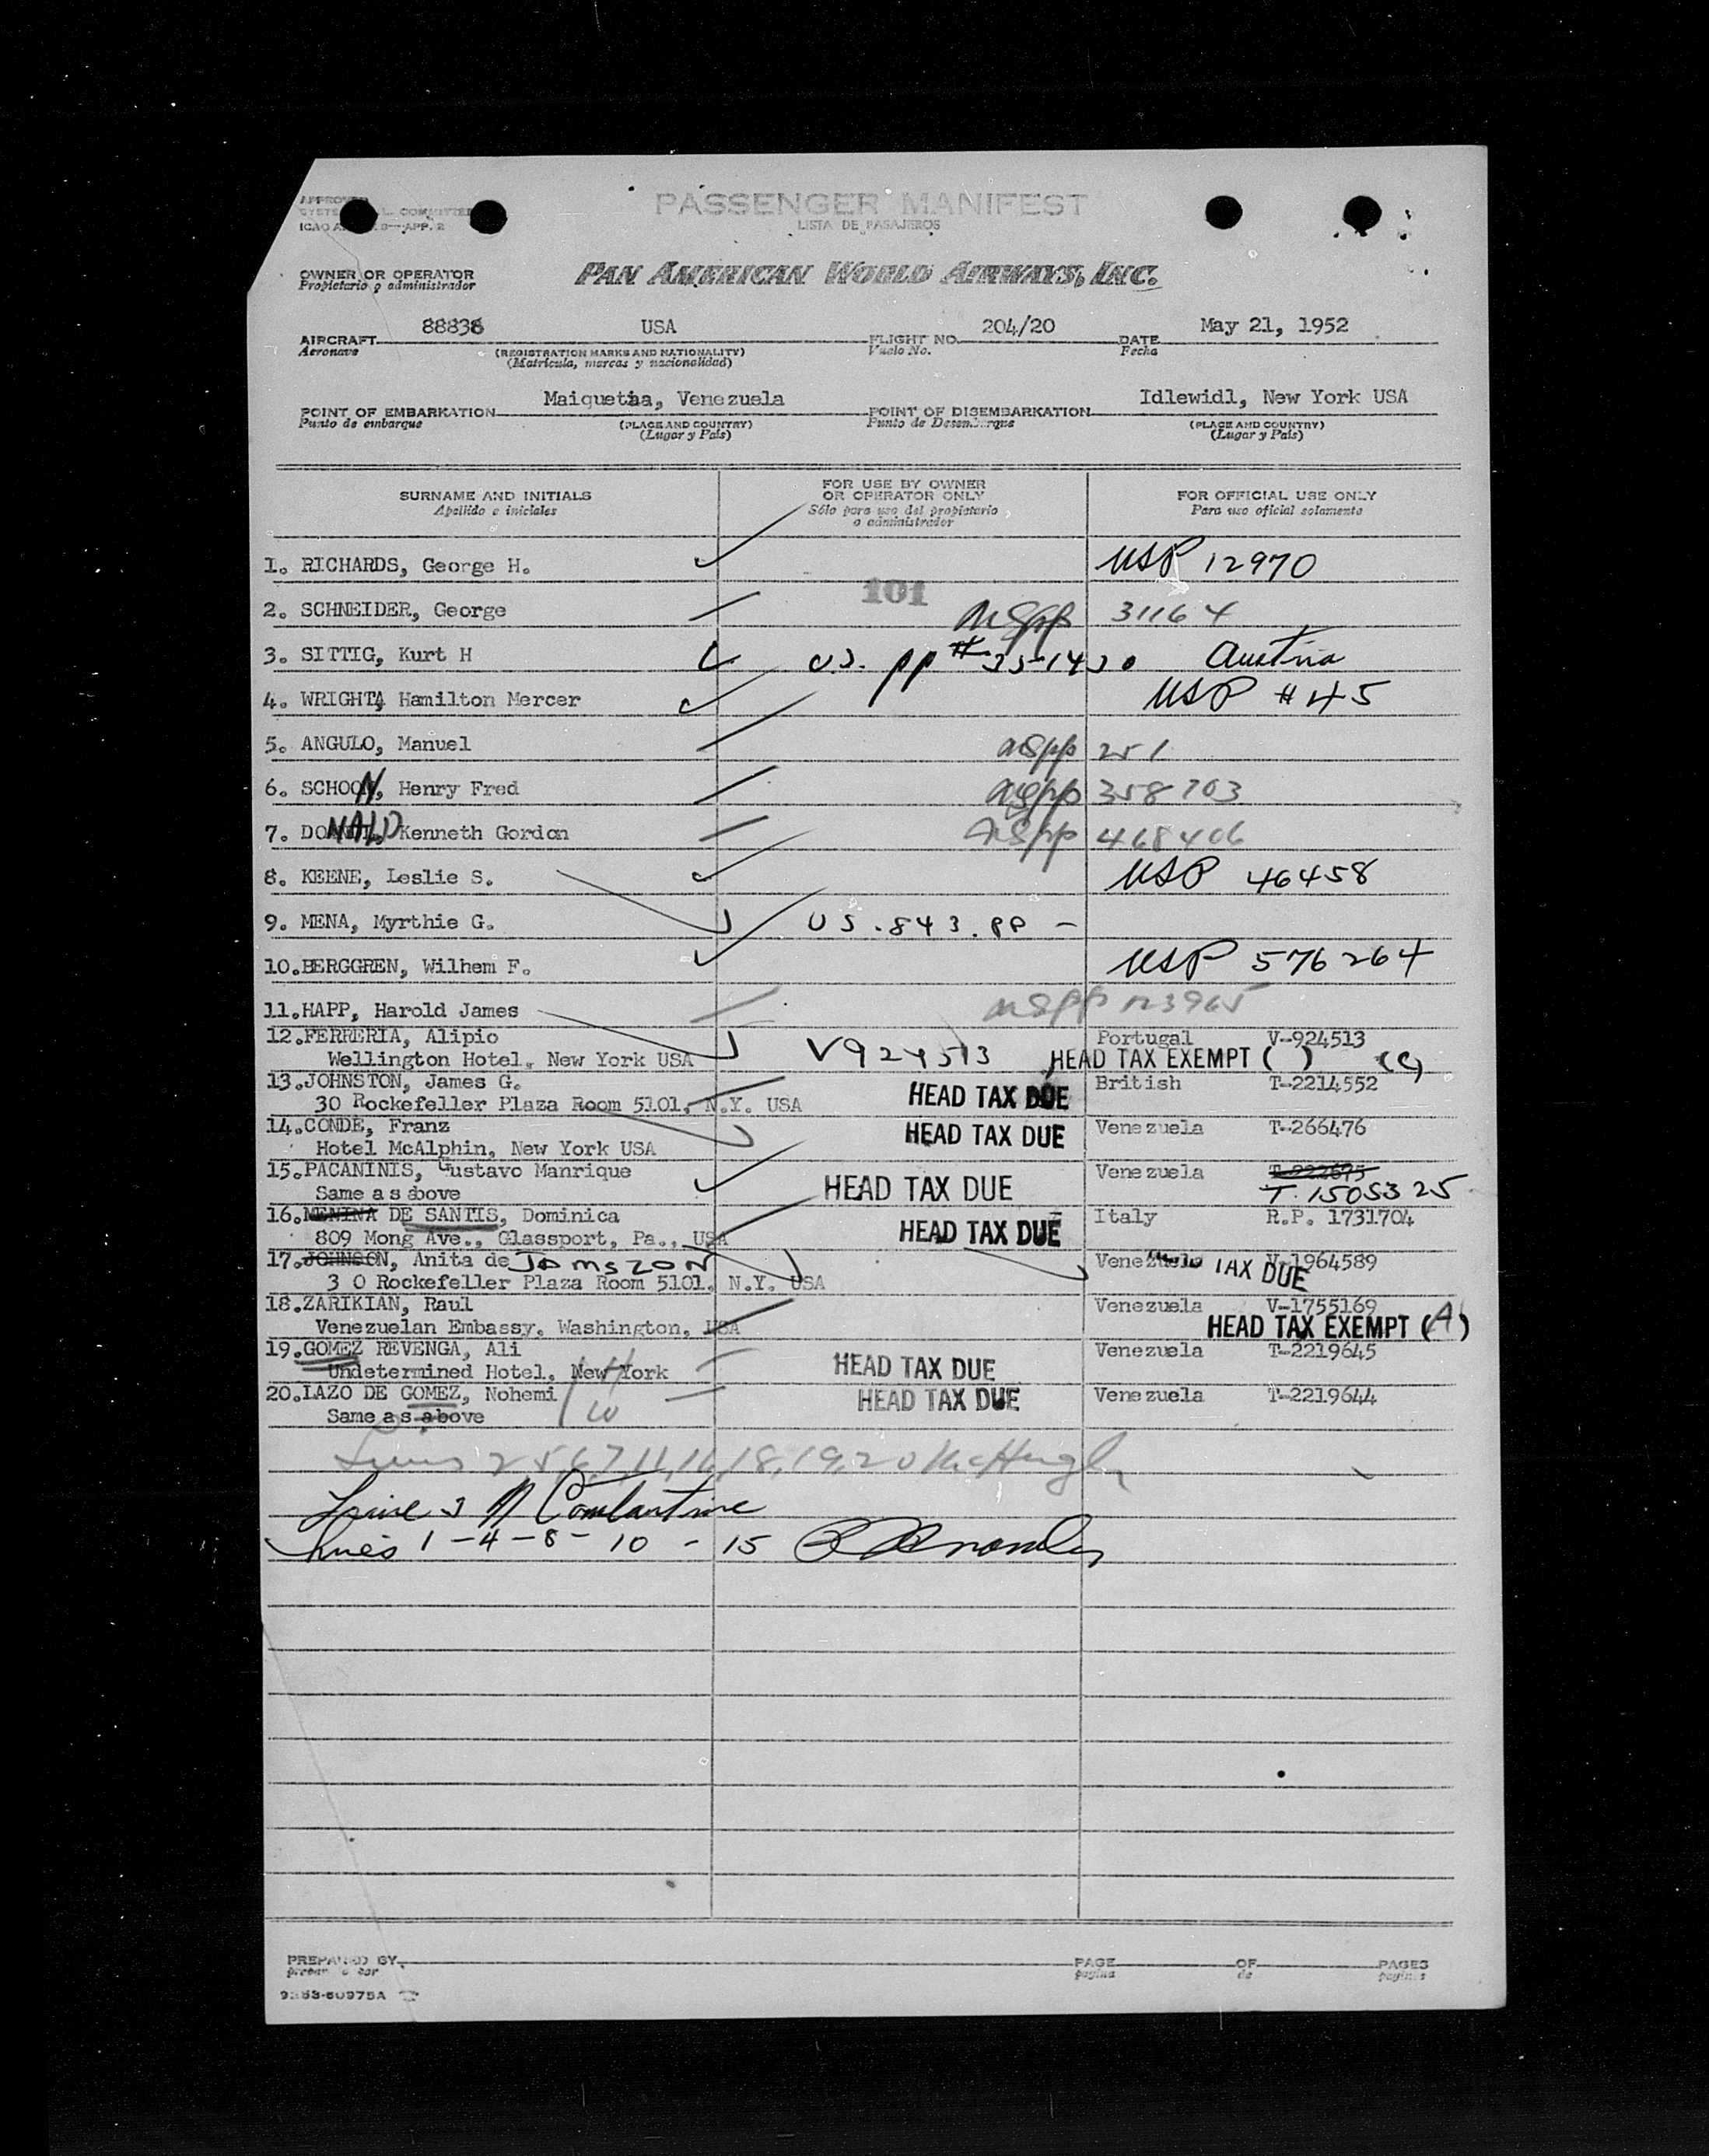 PASSENGER MANIFEST
LISTA DE PASAJEROS
OWNER OR OPERATOR
Propietario o administrador
PAN AMERICAN WORLD AIRWAYS, INC.
AIRCRAFT 88838 USA FLIGHT NO. 204/20 DATE May 21, 1952
Aeronave (REGISTRATION MARKS AND NATIONALITY) Vuelo No. Fecha
(Matricula, marcas y nacionalidad)
POINT OF EMBARKATION Maiquetia, Venezuela POINT OF DISEMBARKATION Idlewidl, New York USA
Punto de embarque (PLACE AND COUNTRY) Punto de Desembarque (PLACE AND COUNTRY)
(Lugar y País) (Lugar y País)
SURNAME AND INITIALS FOR USE BY OWNER OR OPERATOR ONLY FOR OFFICIAL USE ONLY
Apellido e iniciales Sólo para uso del propietario o administrador Para uso oficial solamente
1. RICHARDS, George H. USP 12970
101
2. SCHNEIDER, George uspp 31164
3. SITTIG, Kurt H U.S. pp # Austria
4. WRIGHT, Hamilton Mercer USP #45
5. ANGULO, Manuel uspp 251
6. SCHOON, Henry Fred uspp 358703
7. DONALD Kenneth Gordon uspp 468406
8. KEENE, Leslie S. USP 46458
9. MENA, Myrthie G. US. 843. PP -
10. BERGGREN, Wilhem F. USP 576264
11. HAPP, Harold James uspp 123965
12. FERRERIA, Alipio V924513 Portugal V-924513
Wellington Hotel, New York USA HEAD TAX EXEMPT ( ) (C)
13. JOHNSTON, James G. HEAD TAX DUE British T-2214552
30 Rockefeller Plaza Room 5101, N.Y. USA
14. CONDE, Franz HEAD TAX DUE Venezuela T-266476
Hotel McAlphin, New York USA
15. PACANINIS, Gustavo Manrique HEAD TAX DUE Venezuela T-222675
Same as above T. 1505325
16. MENINA DE SANTIS, Dominica HEAD TAX DUE Italy R.P. 1731704
809 Mong Ave., Glassport, Pa., USA
17. JOHNSON, Anita de JOMSZON Venezuela V-1964589
3 0 Rockefeller Plaza Room 5101, N.Y. USA TAX DUE
18. ZARIKIAN, Raul Venezuela V-1755169
Venezuelan Embassy, Washington, USA HEAD TAX EXEMPT (A)
19. GOMEZ REVENGA, Ali HEAD TAX DUE Venezuela T-2219645
Undetermined Hotel, New York H
20. LAZO DE GOMEZ, Nohemi HEAD TAX DUE Venezuela T-2219644
Same as above W
Lines 2 5,6,7,11,16,18,19,20
Line 3
Lines 1-4-8-10-15
PREPARED BY PAGE OF PAGES
página de páginas